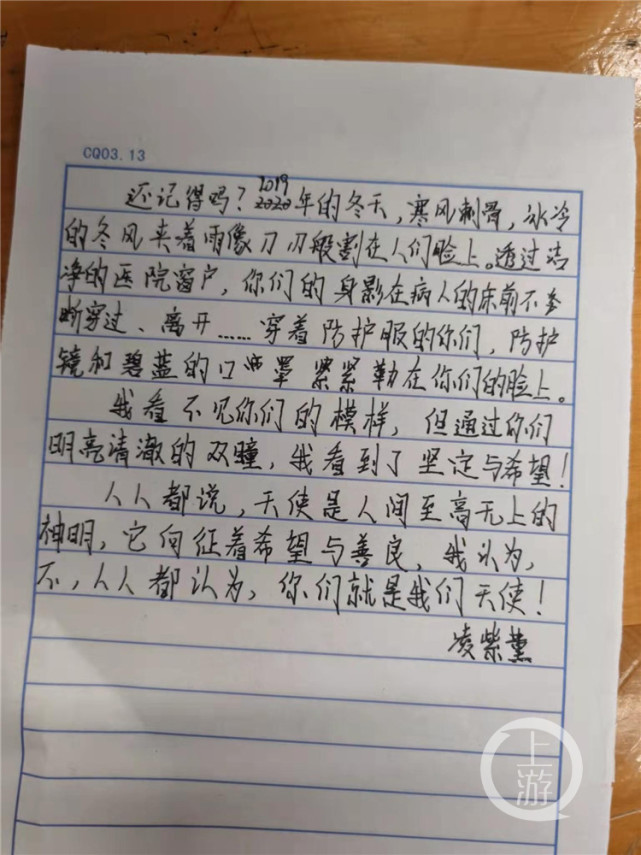 CQ03.13
还记得吗？2019
2020年的冬天，寒风刺骨，冰冷
的冬风夹着雨像刀刃般割在人们脸上。透过洁
净的医院窗户，你们的身影在病人的床前不
断穿过、离开……穿着防护服的你们，防护
镜和碧蓝的口罩紧紧勒在你们的脸上。
我看不见你们的模样，但通过你们
明亮清澈的双瞳，我看到了坚定与希望！
人人都说，天使是人间至高无上的
神明，它向征着希望与善良，我认为，
不，人人都认为，你们就是我们天使！
凌紫薰
上游